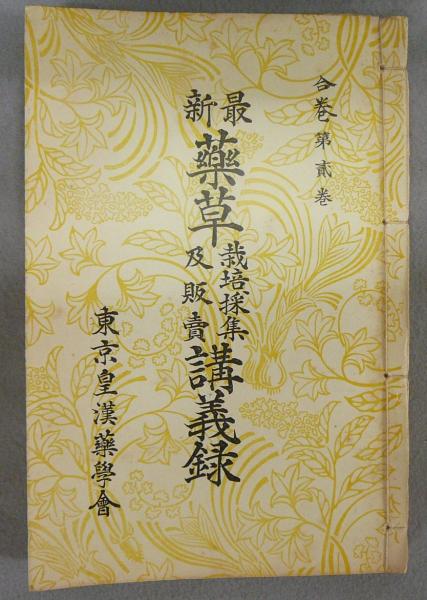 合巻第貳巻
最新藥草栽培採集及販賣講義録
東京皇漢藥學會